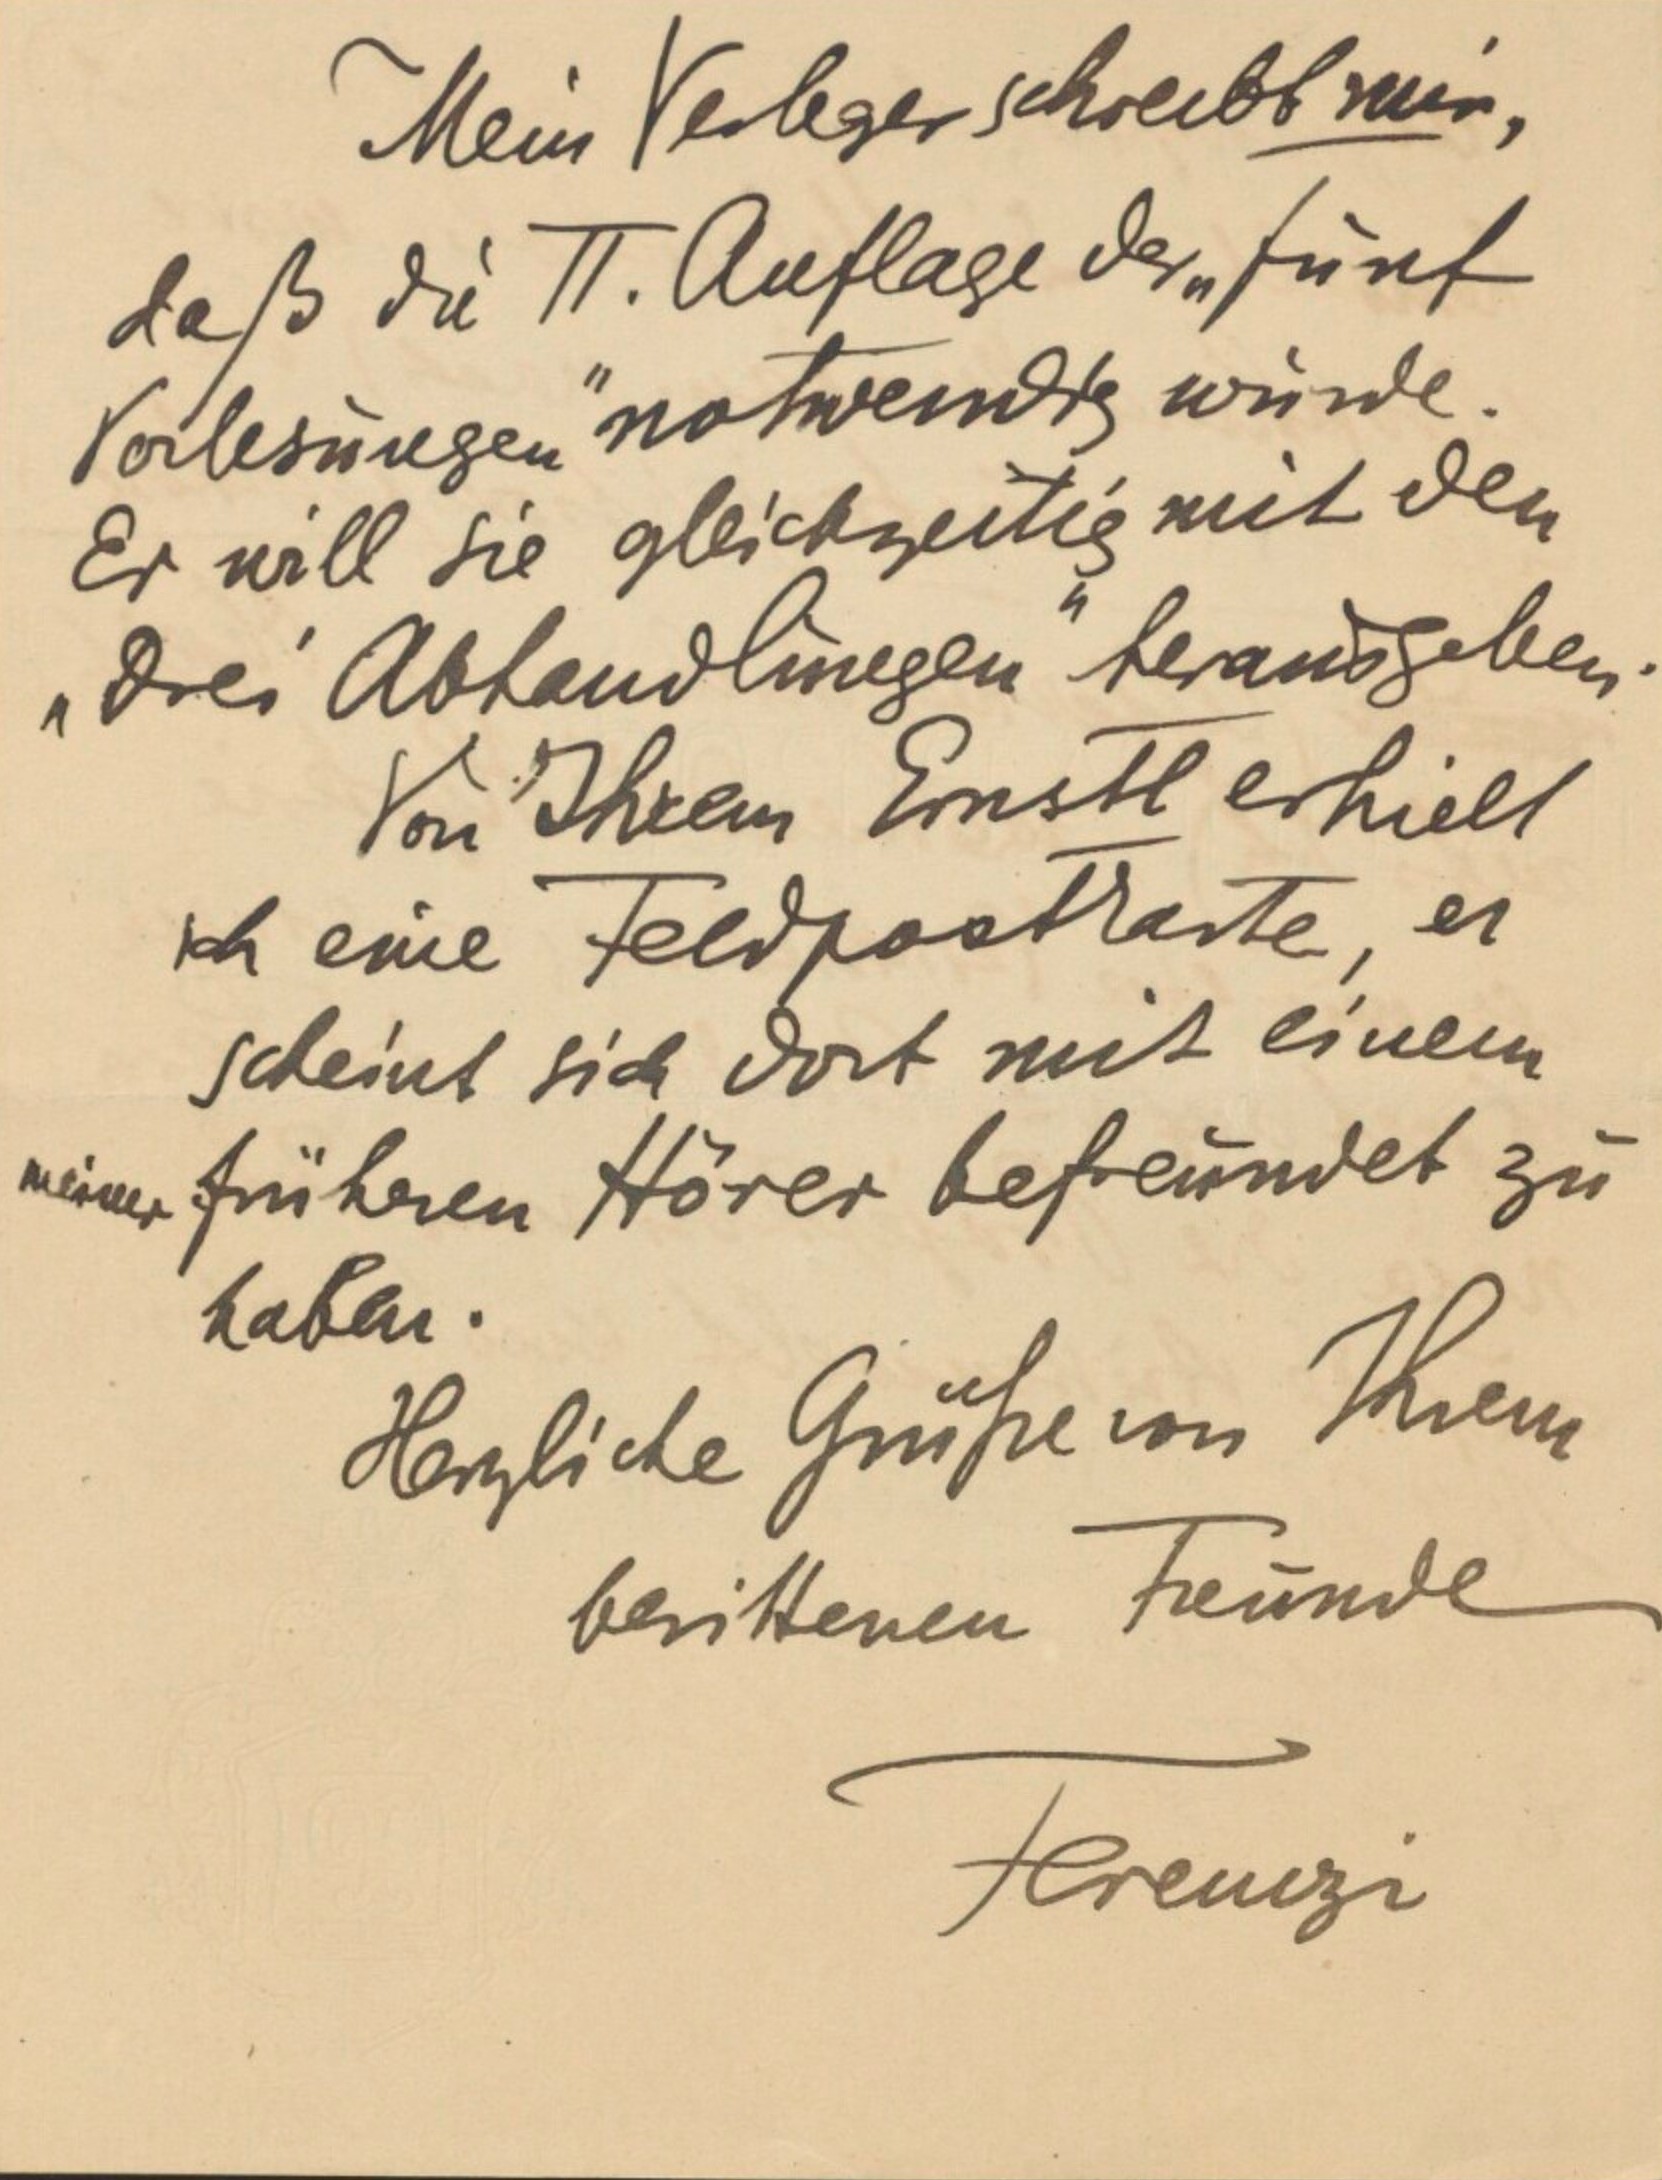 Mein Verleger schreibt mir,
daß die II. Auflage der „fünf
Vorlesungen" notwendig würde.
Er will sie gleichzeitig mit den
„Drei Abhandlungen" herausgeben.
Von Ihrem Ernstl erhielt
ich eine Feldpostkarte, er
scheint sich dort mit einem
meiner früheren Hörer befreundet zu
haben.
Herzliche Grüße von Ihrem
berittenen Freunde
Ferenczi